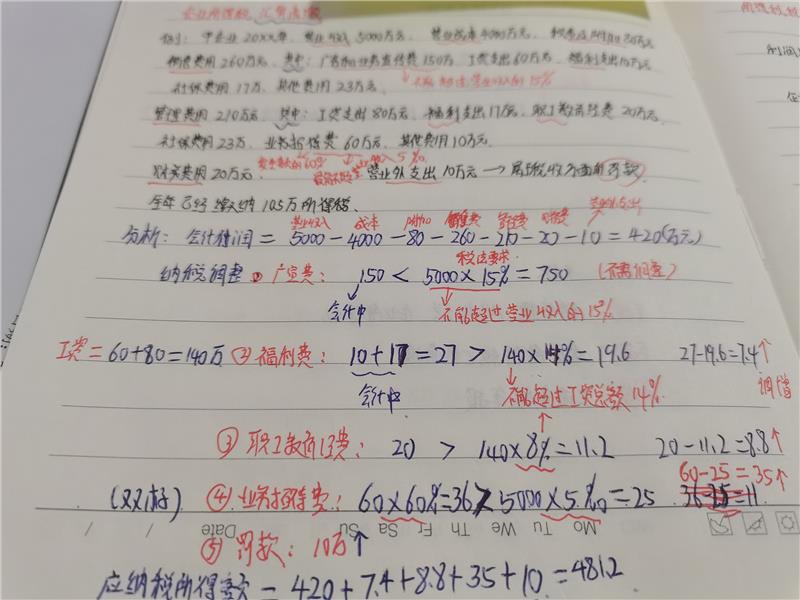 企业所得税 汇算清缴
例1: 甲企业20XX年, 营业收入5000万元, 营业成本4000万元, 税金及附加80万元
销售费用260万元, 其中: 广告和业务宣传费150万, 工资支出60万元, 福利支出10万元
不能超过营业收入的15%
社保费用17万, 其他费用23万元.
管理费用210万元, 其中: 工资支出80万元, 福利支出17万元, 职工教育经费20万元
社保费用23万, 业务招待费60万元, 其他费用10万元.
发生额的60% 收入5‰
财务费用20万元. 营业外支出10万元→属于税收方面的罚款.
全年已经缴纳105万所得税.
营业收入 成本 附加 销售费 管理费 财务费 营业外支出
分析: 会计利润=5000-4000-80-260-210-20-10=420(万元)
税法要求
纳税调整① 广宣费: 150<5000×15%=750 (不需调整)
会计中 不能超过营业收入的15%
工资=60+80=140万 ②福利费: 10+17=27>140×14%=19.6 27-19.6=7.4↑
调增
会计中 不能超过工资总额14%
③职工教育经费: 20>140×8%=11.2 20-11.2=8.8↑
60-25=35↑
(又又好) ④业务招待费: 60×60%=36>5000×5‰=25 36-25=11
Mo Tu We Th Fr Sa Su Date
⑤罚款: 10万↑
应纳税所得额=420+7.4+8.8+35+10=481.2